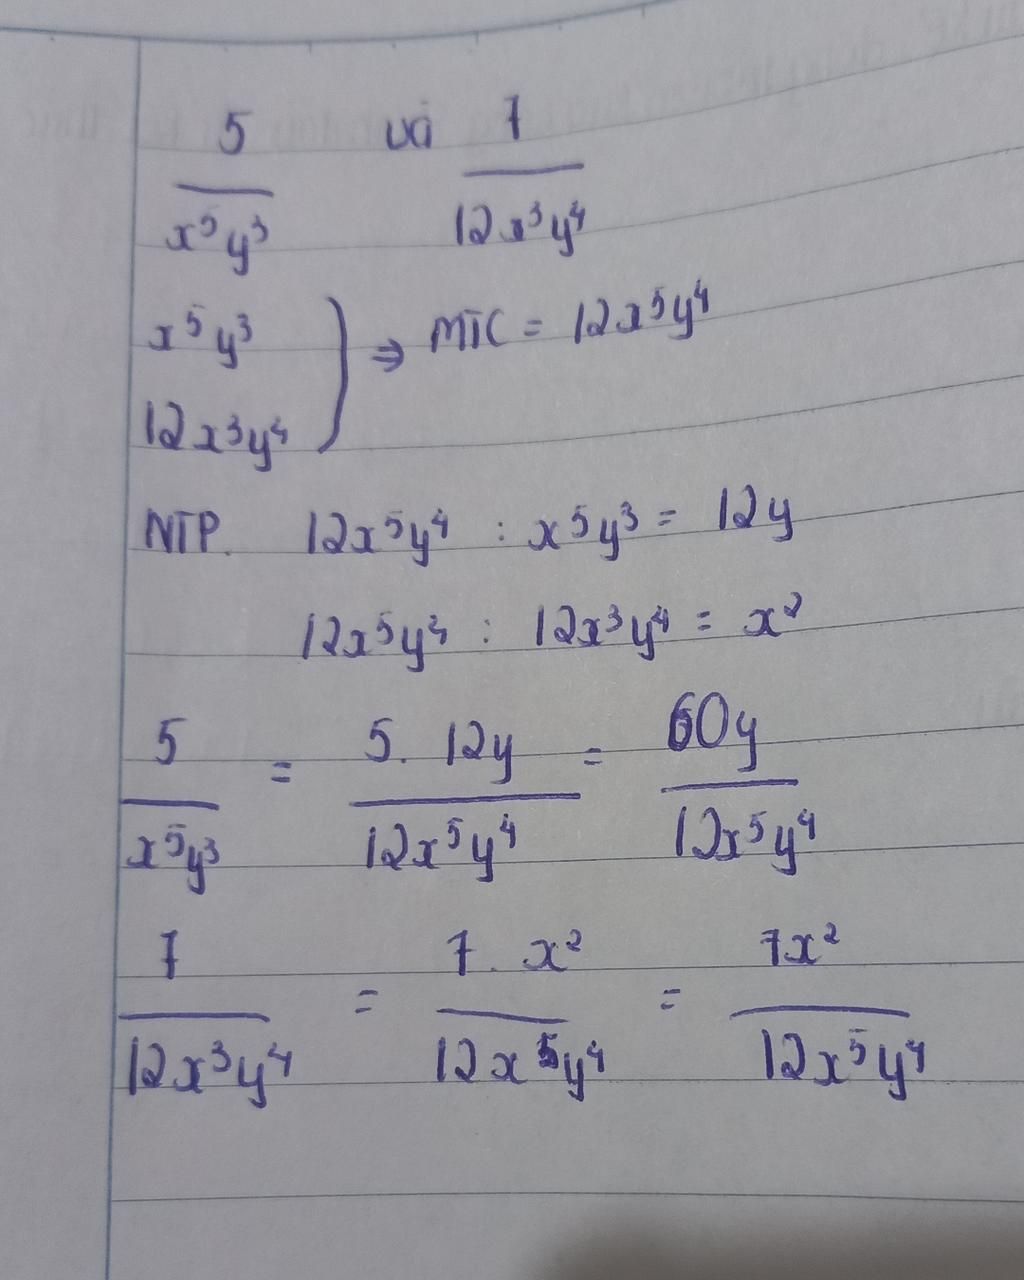 5/x⁵y³ và 7/12x³y⁴
x⁵y³
12x³y⁴ } ⇒ MTC = 12x⁵y⁴
NTP. 12x⁵y⁴ : x⁵y³ = 12y
12x⁵y⁴ : 12x³y⁴ = x²
5/x⁵y³ = 5. 12y/12x⁵y⁴ = 60y/12x⁵y⁴
7/12x³y⁴ = 7. x²/12x⁵y⁴ = 7x²/12x⁵y⁴